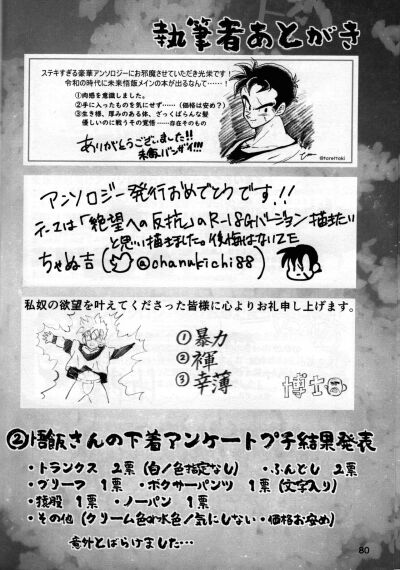 執筆者あとがき
ステキすぎる豪華アンソロジーにお邪魔させていただき光栄です!
令和の時代に未来悟飯メインの本が出るなんて……!
①肉感を意識しました。
②手に入ったものを気にせず……(価格は安め?)
③生き様、厚みのある体、ざっくばらんな髪
優しいのに戦うその覚悟……存在そのもの
ありがとうございました!!
未飯バンザイ!!!
@torattoki
アンソロジー発行おめでとうです!!
テーマは「絶望への反抗」のR-18Gバージョン描きたい
と思い描きました。後悔はないZE
ちゃぬ吉(@chanukichi88)
私奴の欲望を叶えてくださった皆様に心よりお礼申し上げます。
①暴力
②褌
③幸薄
博士
②悟飯さんの下着アンケートプチ結果発表
・トランクス 2票(白/色指定なし) ・ふんどし 2票
・ブリーフ 1票 ・ボクサーパンツ 1票(文字入り)
・猿股 1票 ・ノーパン 1票
・その他(クリーム色か水色/気にしない・価格お安め)
意外とばらけました…
80